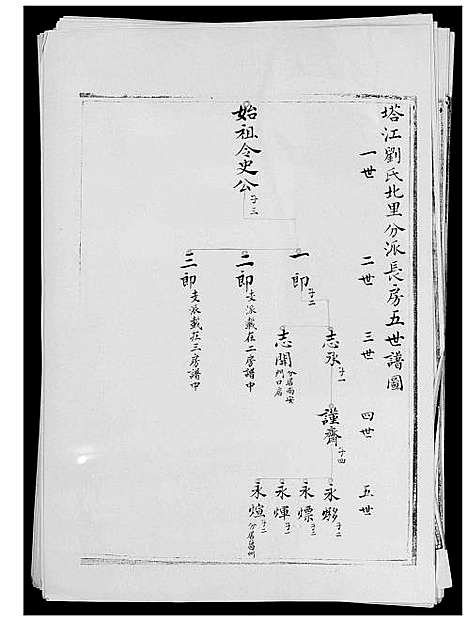 塔江劉氏北里分派長房五世譜圖
一世
二世
三世
四世
五世
始祖令史公
子三
一郎
子二
二郎
支派載在二房譜中
三郎
支派載在三房譜中
志永
子一
志開
分居南安
門口房
謹齋
子四
永
子二
永熛
子三
永煇
子一
永煊
子二
分居